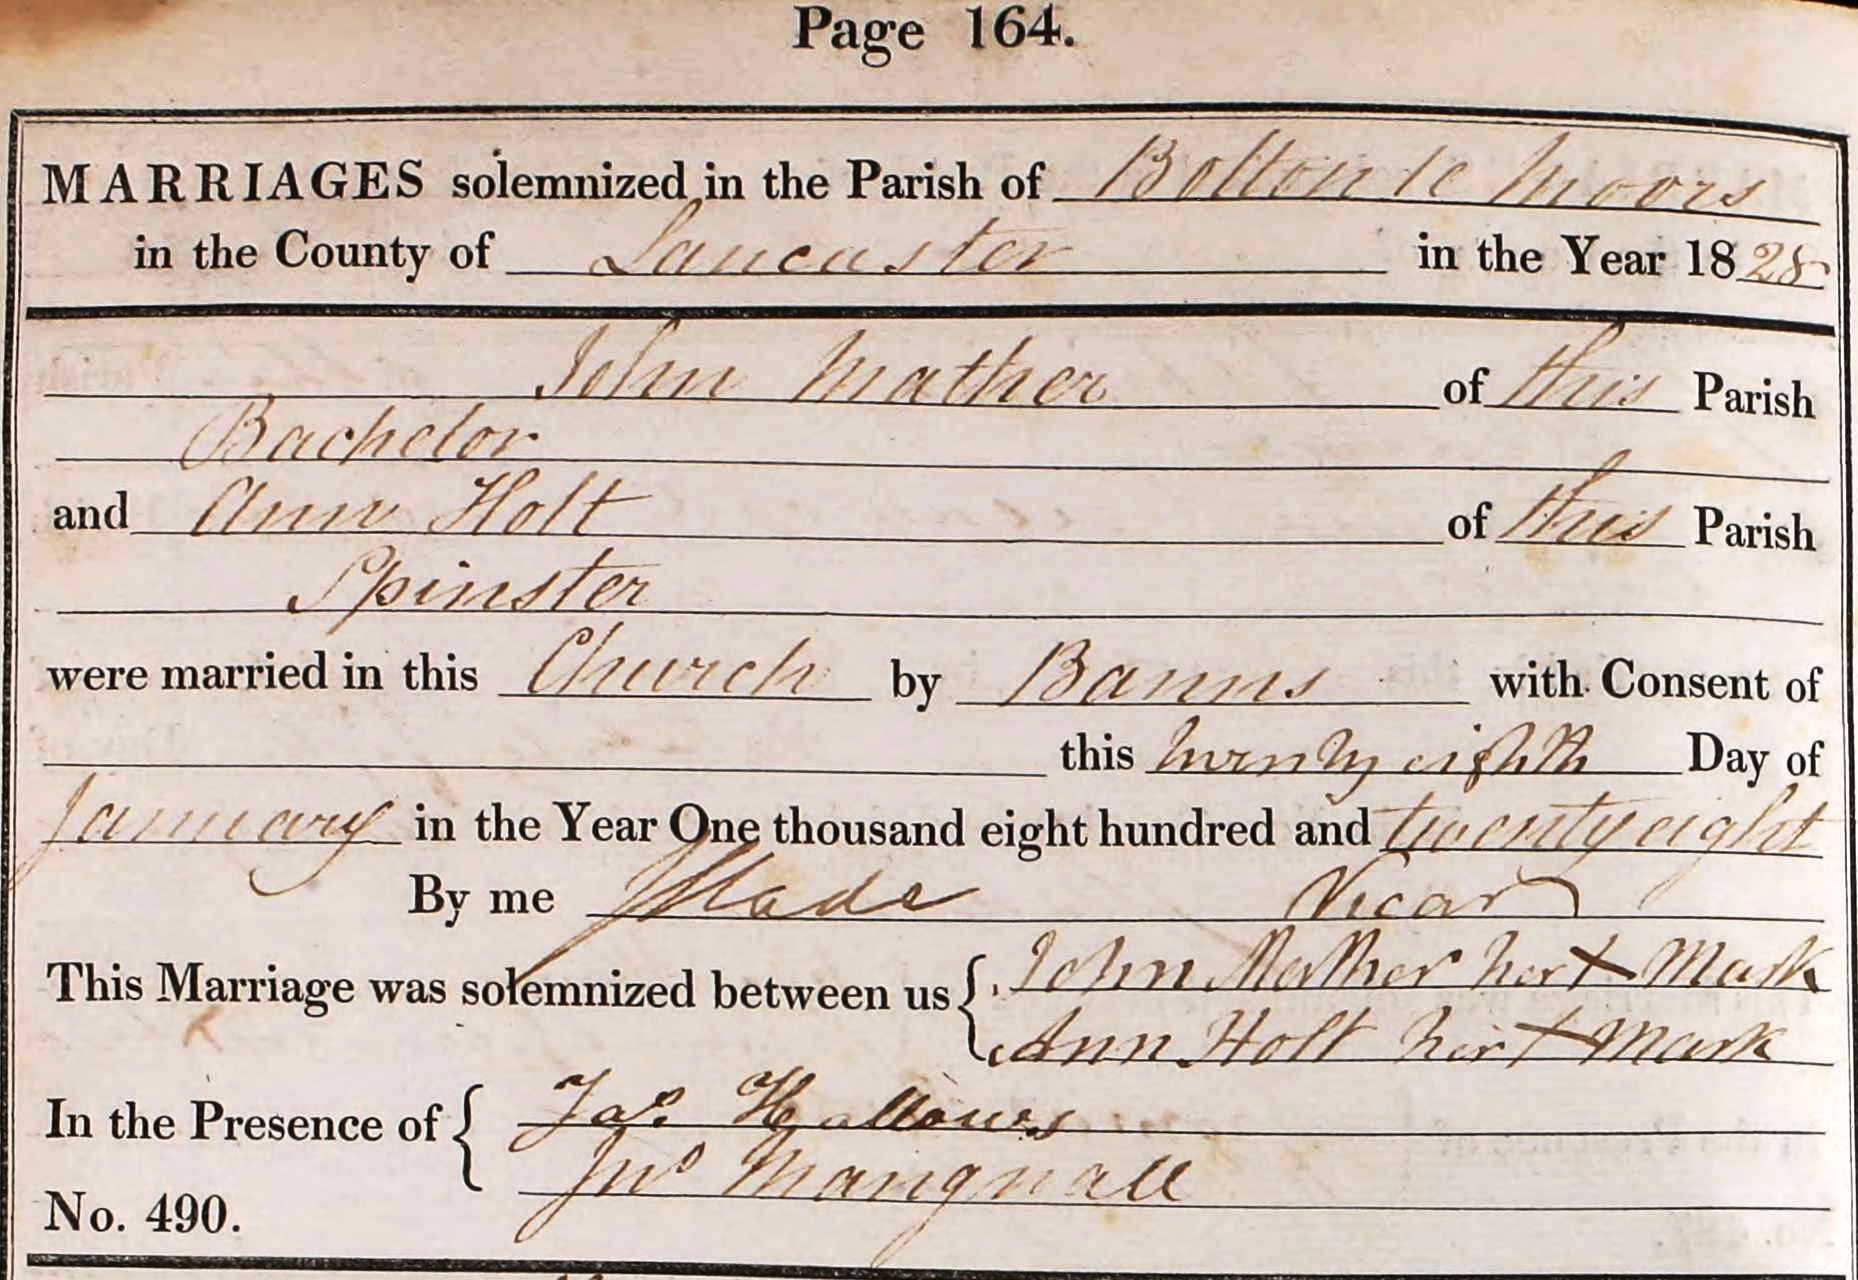 Page 164.
MARRIAGES solemnized in the Parish of Bolton le Moors
in the County of Lancaster in the Year 1828
John Mather of this Parish
Bachelor
and Ann Holt of this Parish
Spinster
were married in this Church by Banns with Consent of
this twenty eighth Day of
January in the Year One thousand eight hundred and twenty eight
By me Slade Vicar
This Marriage was solemnized between us { John Mather his X Mark
Ann Holt her X Mark
In the Presence of { Jas. Hallows
Jno Mangnall
No. 490.